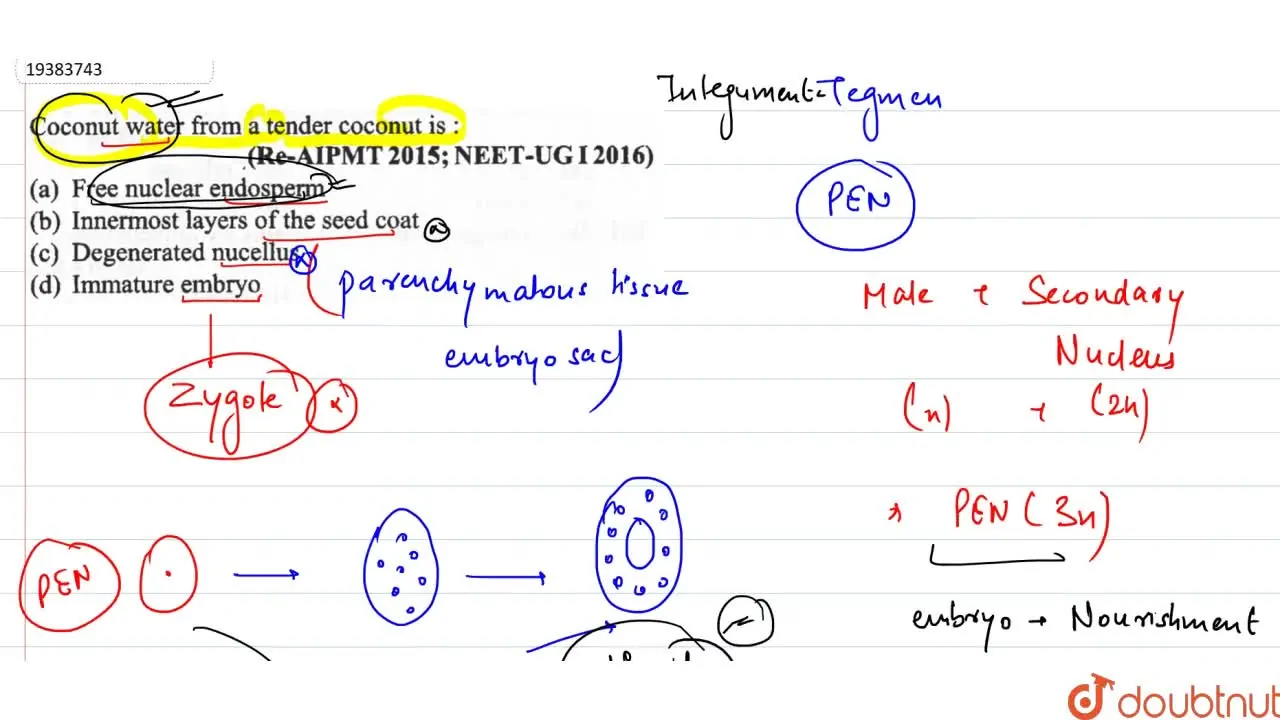 19383743
Coconut water from a tender coconut is :
(Re-AIPMT 2015; NEET-UG I 2016)
(a) Free nuclear endosperm
(b) Innermost layers of the seed coat
(c) Degenerated nucellus
(d) Immature embryo
Integument = Tegmen
PEN
parenchymatous tissue
embryo sac
Zygote
Male + Secondary
Nucleus
(n) + (2n)
PEN (3n)
embryo → Nourishment
PEN
doubtnut